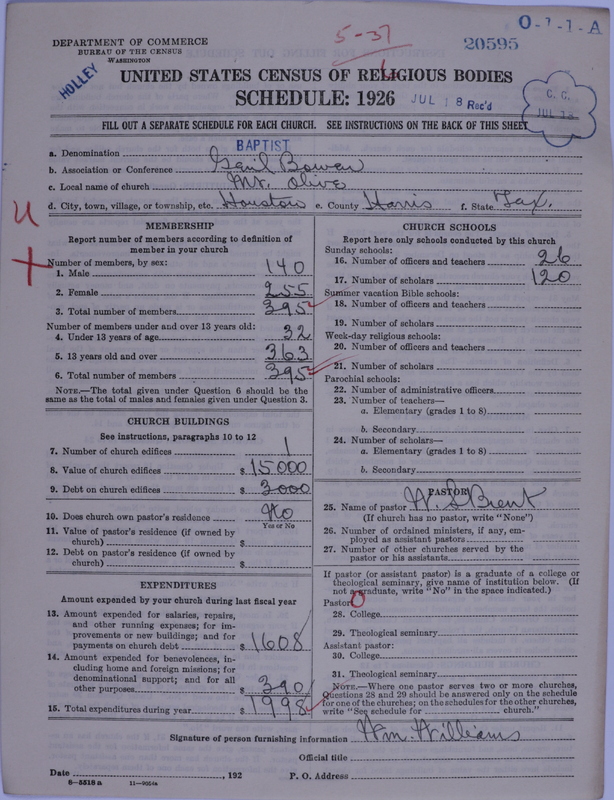 O-1-1-A
5-37
20595
DEPARTMENT OF COMMERCE
BUREAU OF THE CENSUS
WASHINGTON
HOLLEY
UNITED STATES CENSUS OF RELIGIOUS BODIES
SCHEDULE: 1926
JUL 18 Rec'd
C. C.
JUL 18
FILL OUT A SEPARATE SCHEDULE FOR EACH CHURCH. SEE INSTRUCTIONS ON THE BACK OF THIS SHEET
a. Denomination BAPTIST
b. Association or Conference
c. Local name of church Mt. Olive
d. City, town, village, or township, etc. Houston e. County Harris f. State Tex.
U
MEMBERSHIP
Report number of members according to definition of
member in your church
Number of members, by sex:
1. Male 140
2. Female 255
3. Total number of members 395
Number of members under and over 13 years old:
4. Under 13 years of age 32
5. 13 years old and over 363
6. Total number of members 395
NOTE.—The total given under Question 6 should be
the same as the total of males and females given under Question 3.
CHURCH BUILDINGS
See instructions, paragraphs 10 to 12
7. Number of church edifices 1
8. Value of church edifices $15000
9. Debt on church edifices $3000
10. Does church own pastor's residence No
Yes or No
11. Value of pastor's residence (if owned by
church) $
12. Debt on pastor's residence (if owned by
church) $
EXPENDITURES
Amount expended by your church during last fiscal year
13. Amount expended for salaries, repairs,
and other running expenses; for im-
provements or new buildings; and for
payments on church debt $1608
14. Amount expended for benevolences, in-
cluding home and foreign missions; for
denominational support; and for all
other purposes $390
15. Total expenditures during year $1998
CHURCH SCHOOLS
Report here only schools conducted by this church
Sunday schools:
16. Number of officers and teachers 26
17. Number of scholars 120
Summer vacation Bible schools:
18. Number of officers and teachers
19. Number of scholars
Week-day religious schools:
20. Number of officers and teachers
21. Number of scholars
Parochial schools:
22. Number of administrative officers
23. Number of teachers—
a. Elementary (grades 1 to 8)
b. Secondary
24. Number of scholars—
a. Elementary (grades 1 to 8)
b. Secondary
PASTOR
25. Name of pastor W. S Brent
(If church has no pastor, write "None")
26. Number of ordained ministers, if any, em-
ployed as assistant pastors
27. Number of other churches served by the
pastor or his assistants
If pastor (or assistant pastor) is a graduate of a college or
theological seminary, give name of institution below. (If
not a graduate, write "No" in the space indicated.)
Pastor: O
28. College
29. Theological seminary
Assistant pastor:
30. College
31. Theological seminary
NOTE.—Where one pastor serves two or more churches,
Questions 28 and 29 should be answered only on the schedule
for one of the churches; on the schedules for the other churches,
write "See schedule for church."
Signature of person furnishing information Wm. Williams
Official title
Date , 192 P. O. Address
8-5318a 11-9054a